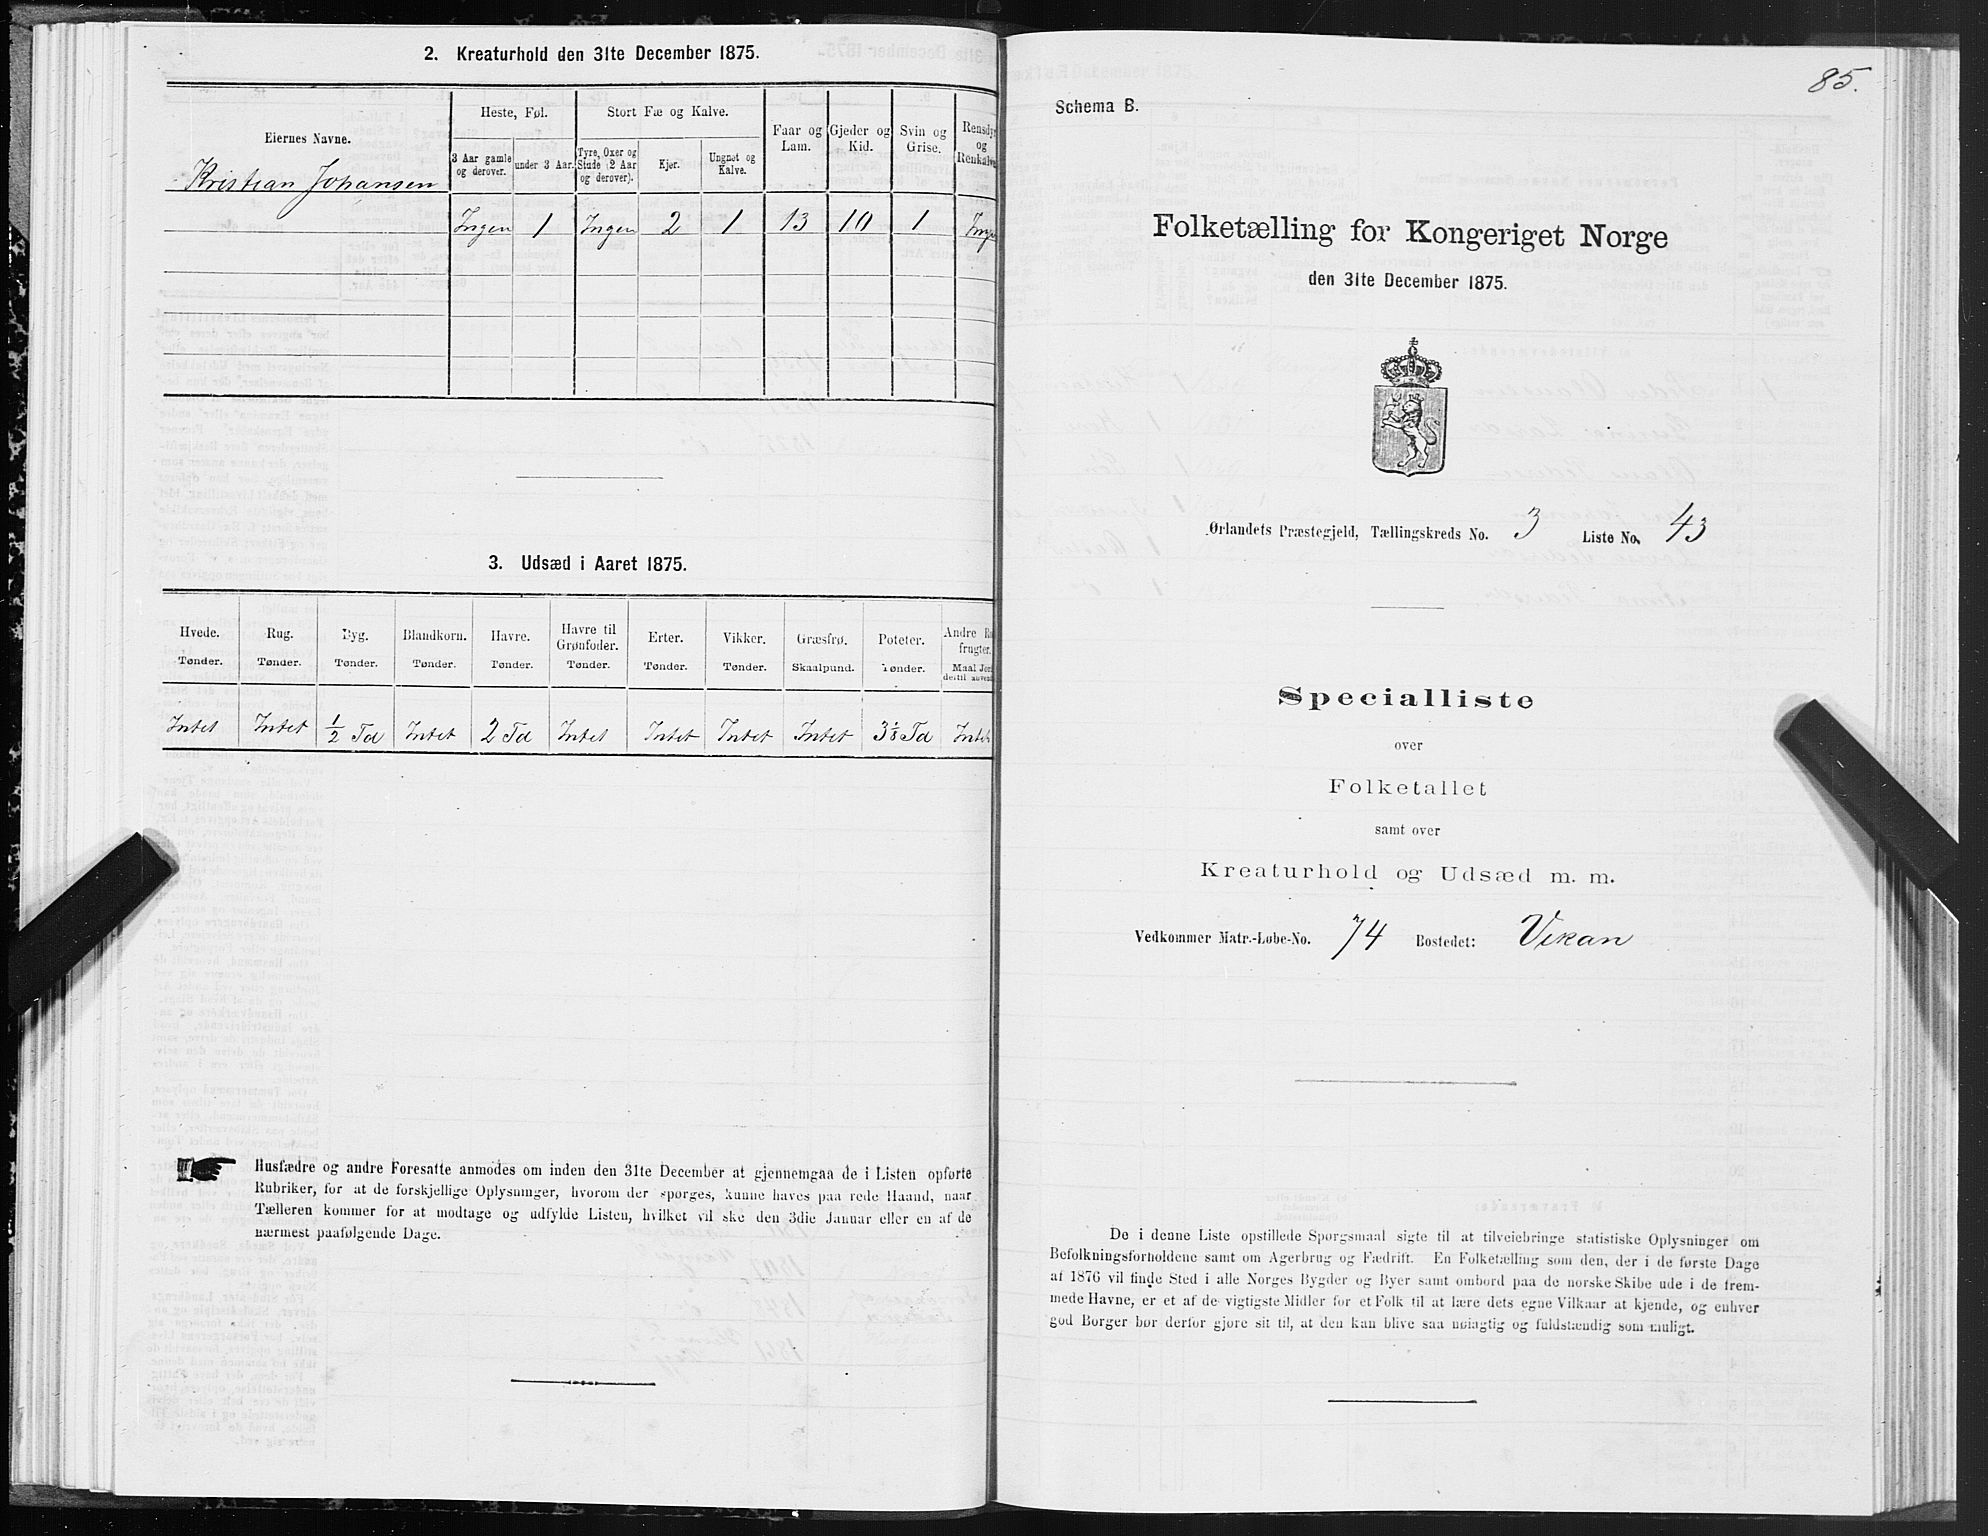 2. Kreaturhold den 31te December 1875.
Eiernes Navne.
Heste, Føl.
Stort Fæ og Kalve.
Faar og Lam.
Gjeder og Kid.
Svin og Grise.
Rensdyr og Renkalve
3 Aar gamle og derover.
under 3 Aar.
Tyre, Oxer og Stude (2 Aar og derover).
Kjør.
Ungnøt og Kalve.
Kristian Johansen
Ingen 1 Ingen 2 1 13 10 1 Ingen
3. Udsæd i Aaret 1875.
Hvede. Rug. Byg. Blandkorn. Havre. Havre til Grønfoder. Erter. Vikker. Græsfrø. Poteter. Andre
frugter.
Tønder. Tønder. Tønder. Tønder. Tønder. Tønder. Tønder. Tønder. Skaalpund. Tønder. Maal
Intet Intet 1/2 Td Intet 2 Td Intet Intet Intet Intet Td Intet
Husfædre og andre Foresatte anmodes om inden den 31te December at gjennemgaa de i Listen opførte
Rubriker, for at de forskjellige Oplysninger, hvorom der spørges, kunne haves paa rede Haand, naar
Tælleren kommer for at modtage og udfylde Listen, hvilket vil ske den 3die Januar eller en af de
nærmest paafølgende Dage.
85.
Schema B.
Folketælling for Kongeriget Norge
den 31te December 1875.
Ørlandets Præstegjeld, Tællingskreds No. 3 Liste No. 43
Specialliste
over
Folketallet
samt over
Kreaturhold og Udsæd m. m.
Vedkommer Matr.-Løbe-No. 74 Bostedet: Vikan
De i denne Liste opstillede Spørgsmaal sigte til at tilveiebringe statistiske Oplysninger om
Befolkningsforholdene samt om Agerbrug og Fædrift. En Folketælling som den, der i de første Dage
af 1876 vil finde Sted i alle Norges Bygder og Byer samt ombord paa de norske Skibe ude i de frem-
mede Havne, er et af de vigtigste Midler for et Folk til at lære dets egne Vilkaar at kjende, og enhver
god Borger bør derfor gjøre sit til, at den kan blive saa nøiagtig og fuldstændig som muligt.